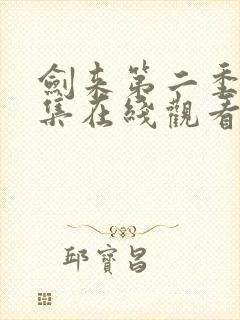 劍来第二季
集在綫觀看
邱寶昌